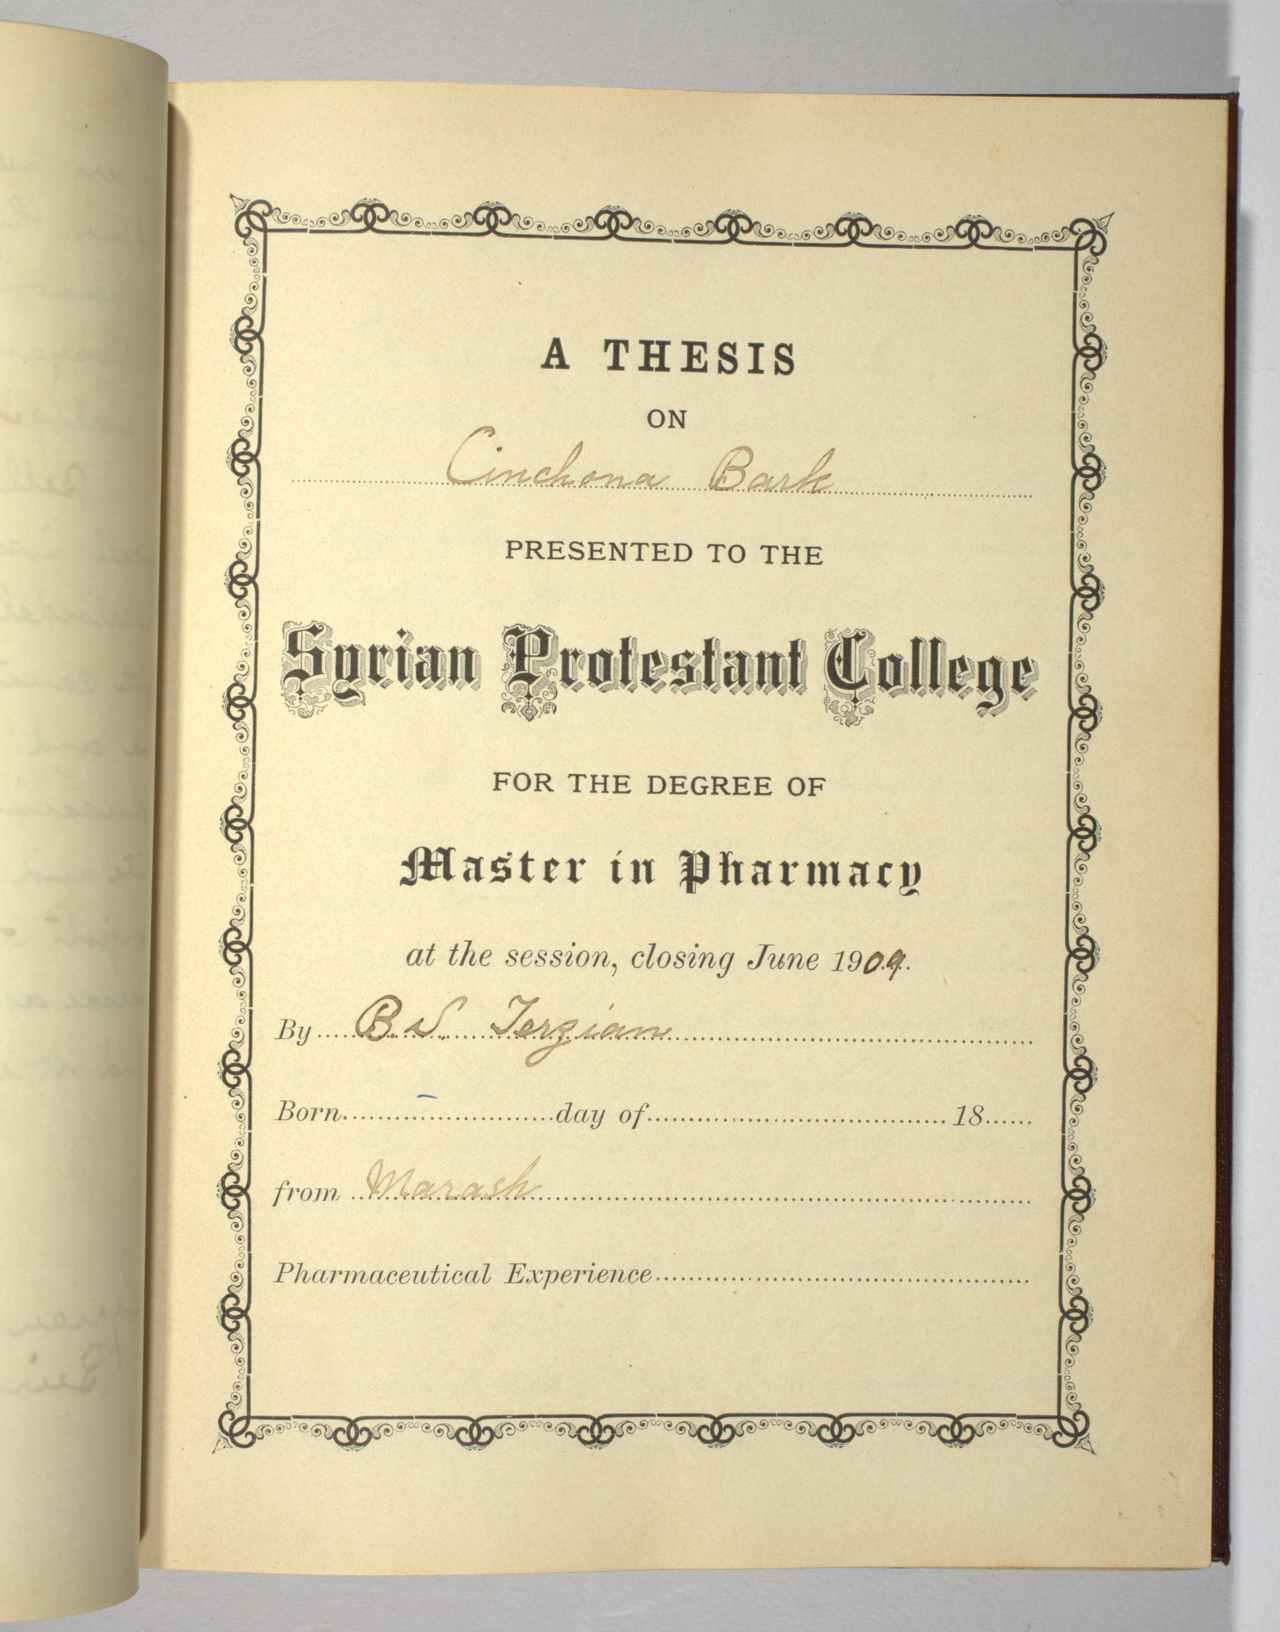 A THESIS
ON
Cinchona Bark
PRESENTED TO THE
Syrian Protestant College
FOR THE DEGREE OF
Master in Pharmacy
at the session, closing June 1909.
By B. S. Terzian
Born day of 18
from Marash
Pharmaceutical Experience